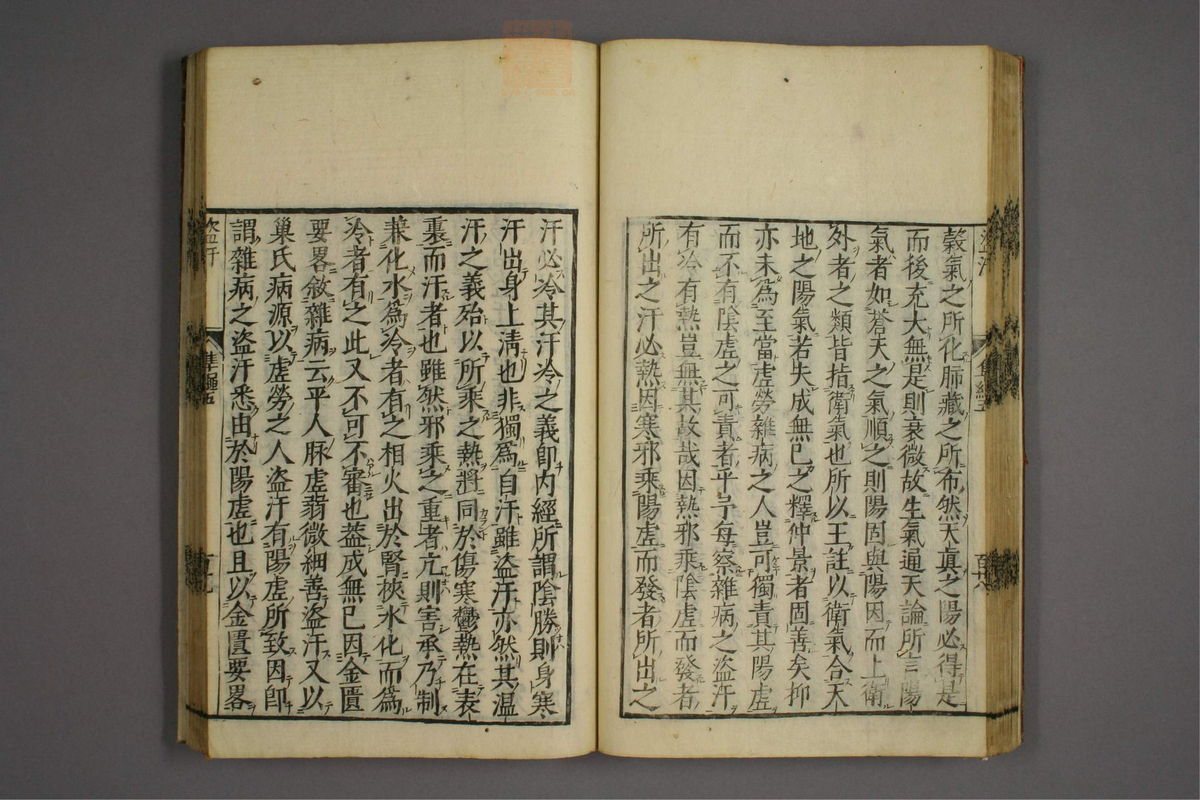 穀氣之所化肺藏之所布然天真之陽必得是
而後充大無是則衰微故生氣通天論所云陽
氣者如蒼天之氣順之則陽固與陽因而上衛
外者之類皆指衛氣也所以王註以衛氣合天
地之陽氣若失成無已之釋仲景者固善矣抑
亦未為至當虛勞雜病之人豈可獨責其陽虛
而不有陰虛之可責者乎予每察雜病之盜汗
有冷有熱豈無其故哉因熱邪乘陰虛而發者
所出之汗必熱因寒邪乘陽虛而發者所出之
汗必冷其汗冷之義即內經所謂陰勝則身寒
汗出身上淸也非獨爲自汗雖盜汗亦然其溫
汗之義殆以所乘之熱將同於傷寒鬱熱在表
裏而汗者也雖然邪乘之重者亢則害承乃制
兼化水爲冷者有之相火出於腎挾水化而爲
冷者有之此又不可不審也葢成無已因金匱
要畧敘雜病云平人脉虛弱微細善盜汗又以
巢氏病源以虛勞之人盜汗有陽虛所致因卽
謂雜病之盜汗悉由於陽虛也且以金匱要畧
盜汗
準繩五